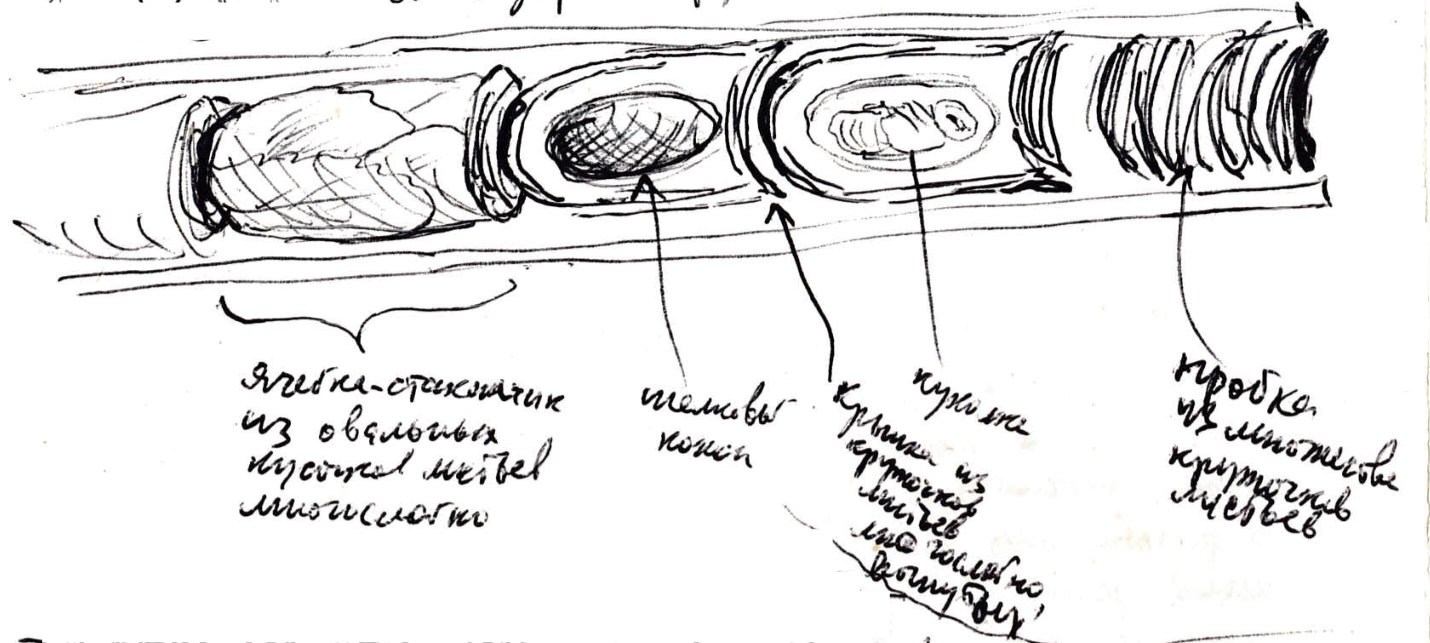 ячейка-стаканчик
из овальных
кусочков листьев
многослойно
шелковый
кокон
крышка из
кружочков
листьев
многослойно
вогнутых
куколка
пробка
из множества
кружочков
листьев